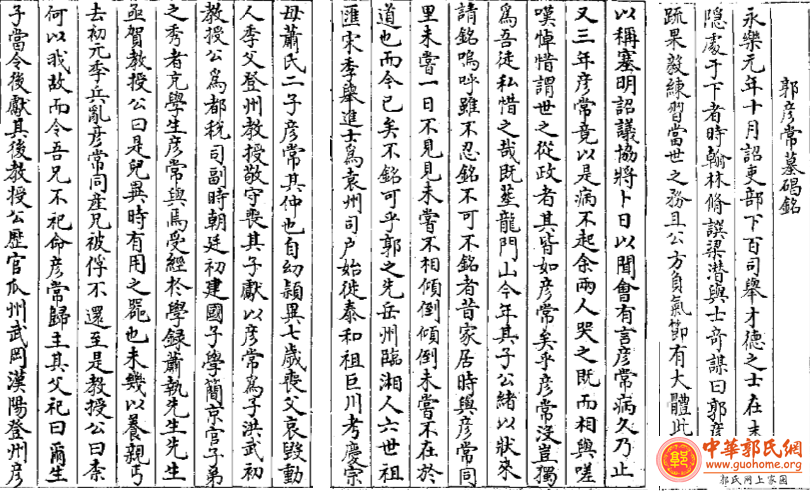 郭彦常墓碣銘
永樂元年十月詔吏部下百司舉才德之士在
隱處于下者時翰林脩譔梁潛與士奇謀曰郭彦
疏果毅練習當世之務且公方負氣節有大體此
以稱塞明詔議協將卜日以聞會有言彦常病久乃止
又三年彦常竟以是病不起余兩人哭之既而相與嗟
嘆悼惜謂世之從政者其皆如彦常矣乎彦常沒豈獨
爲吾徒私惜之哉既葬龍門山今年其子公緒以狀來
請銘嗚呼雖不忍銘不可不銘者昔家居時與彦常同
里未嘗一日不見見未嘗不相傾倒傾倒未嘗不在於
道也而今已矣不銘可乎郭之先岳州臨湘人六世祖
滙宋季舉進士爲袁州司户始徙泰和祖巨川考慶宗
母蕭氏二子彦常其仲也自幼穎異七歲喪父哀毀動
人季父登州教授敬守喪其子獻以彦常爲子洪武初
教授公爲都税司副時朝廷初建國子學簡京官子弟
之秀者充學生彦常與焉受經於學録蕭執先生先生
亟賀教授公曰是兒異時有用之噐也未幾以養親丐
去初元季兵亂彦常同產兄被俘不還至是教授公曰柰
何以我故而令吾兄不祀命彦常歸主其父祀曰爾生
子當令後獻其後教授公歷官瓜州武岡漢陽登州彦
中華郭氏網
www.guohome.org
郭氏网上家园